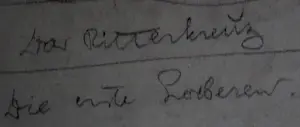 Das Ritterkreuz
Die erste